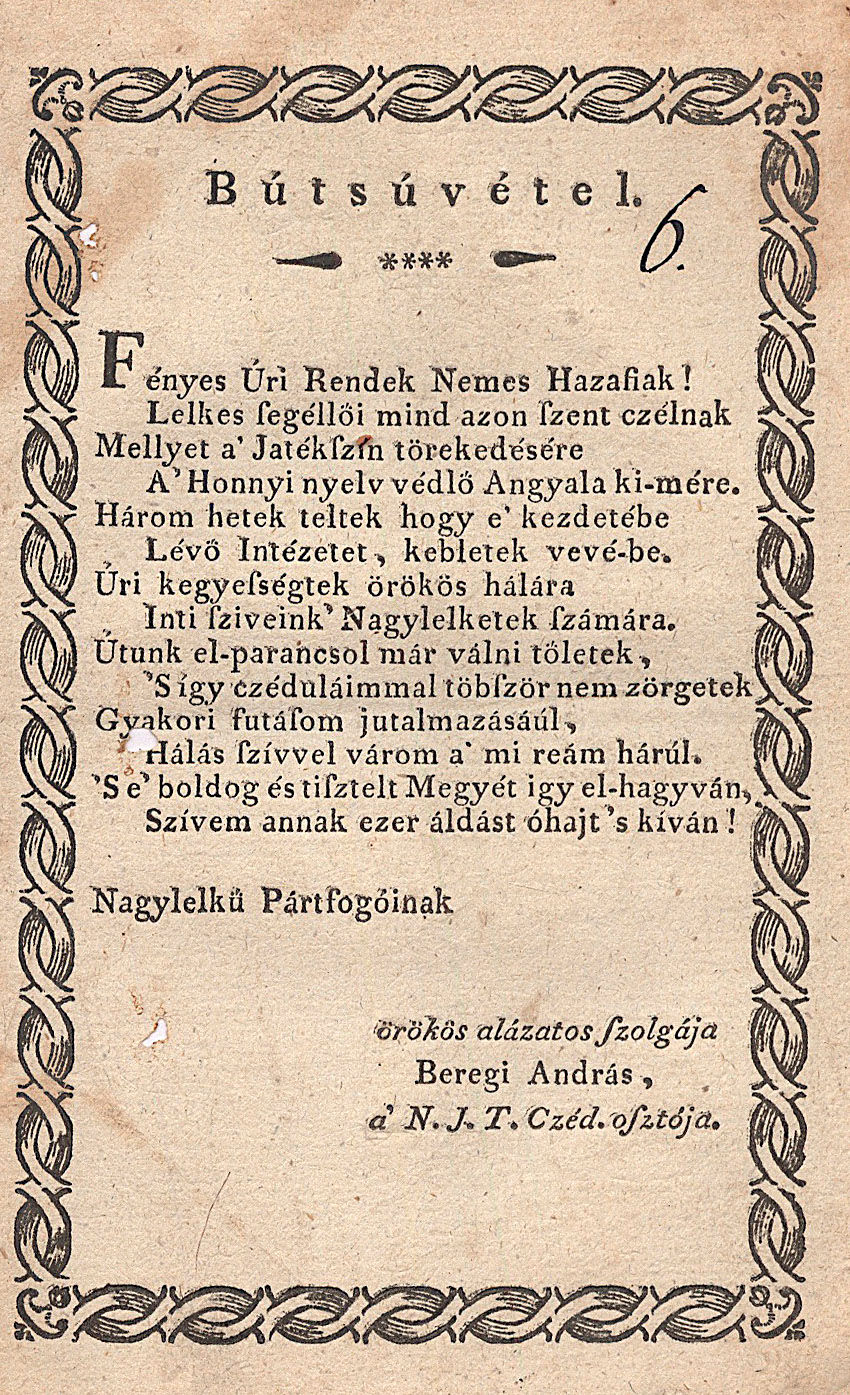 Bútsúvétel.
6.
****
Fényes Úri Rendek Nemes Hazafiak!
Lelkes ſegéllői mind azon ſzent czélnak
Mellyet a' Jatékſzín törekedésére
A' Honnyi nyelv védlő Angyala ki-mére.
Három hetek teltek hogy e' kezdetébe
Lévő Intézetet, kebletek vevé-be.
Úri kegyeſségtek örökös hálára
Inti ſziveink' Nagylelketek ſzámára.
Útunk el-parancsol már válni tőletek,
'S így czéduláimmal többſzör nem zörgetek
Gyakori futáſom jutalmazásáúl,
Hálás ſzívvel várom a' mi reám hárúl.
'S e' boldog és tiſztelt Megyét igy el-hagyván,
Szívem annak ezer áldást óhajt 's kíván!
Nagylelkű Pártfogóinak
örökös alázatos ſzolgája
Beregi András,
a' N. J. T. Czéd. oſztója.